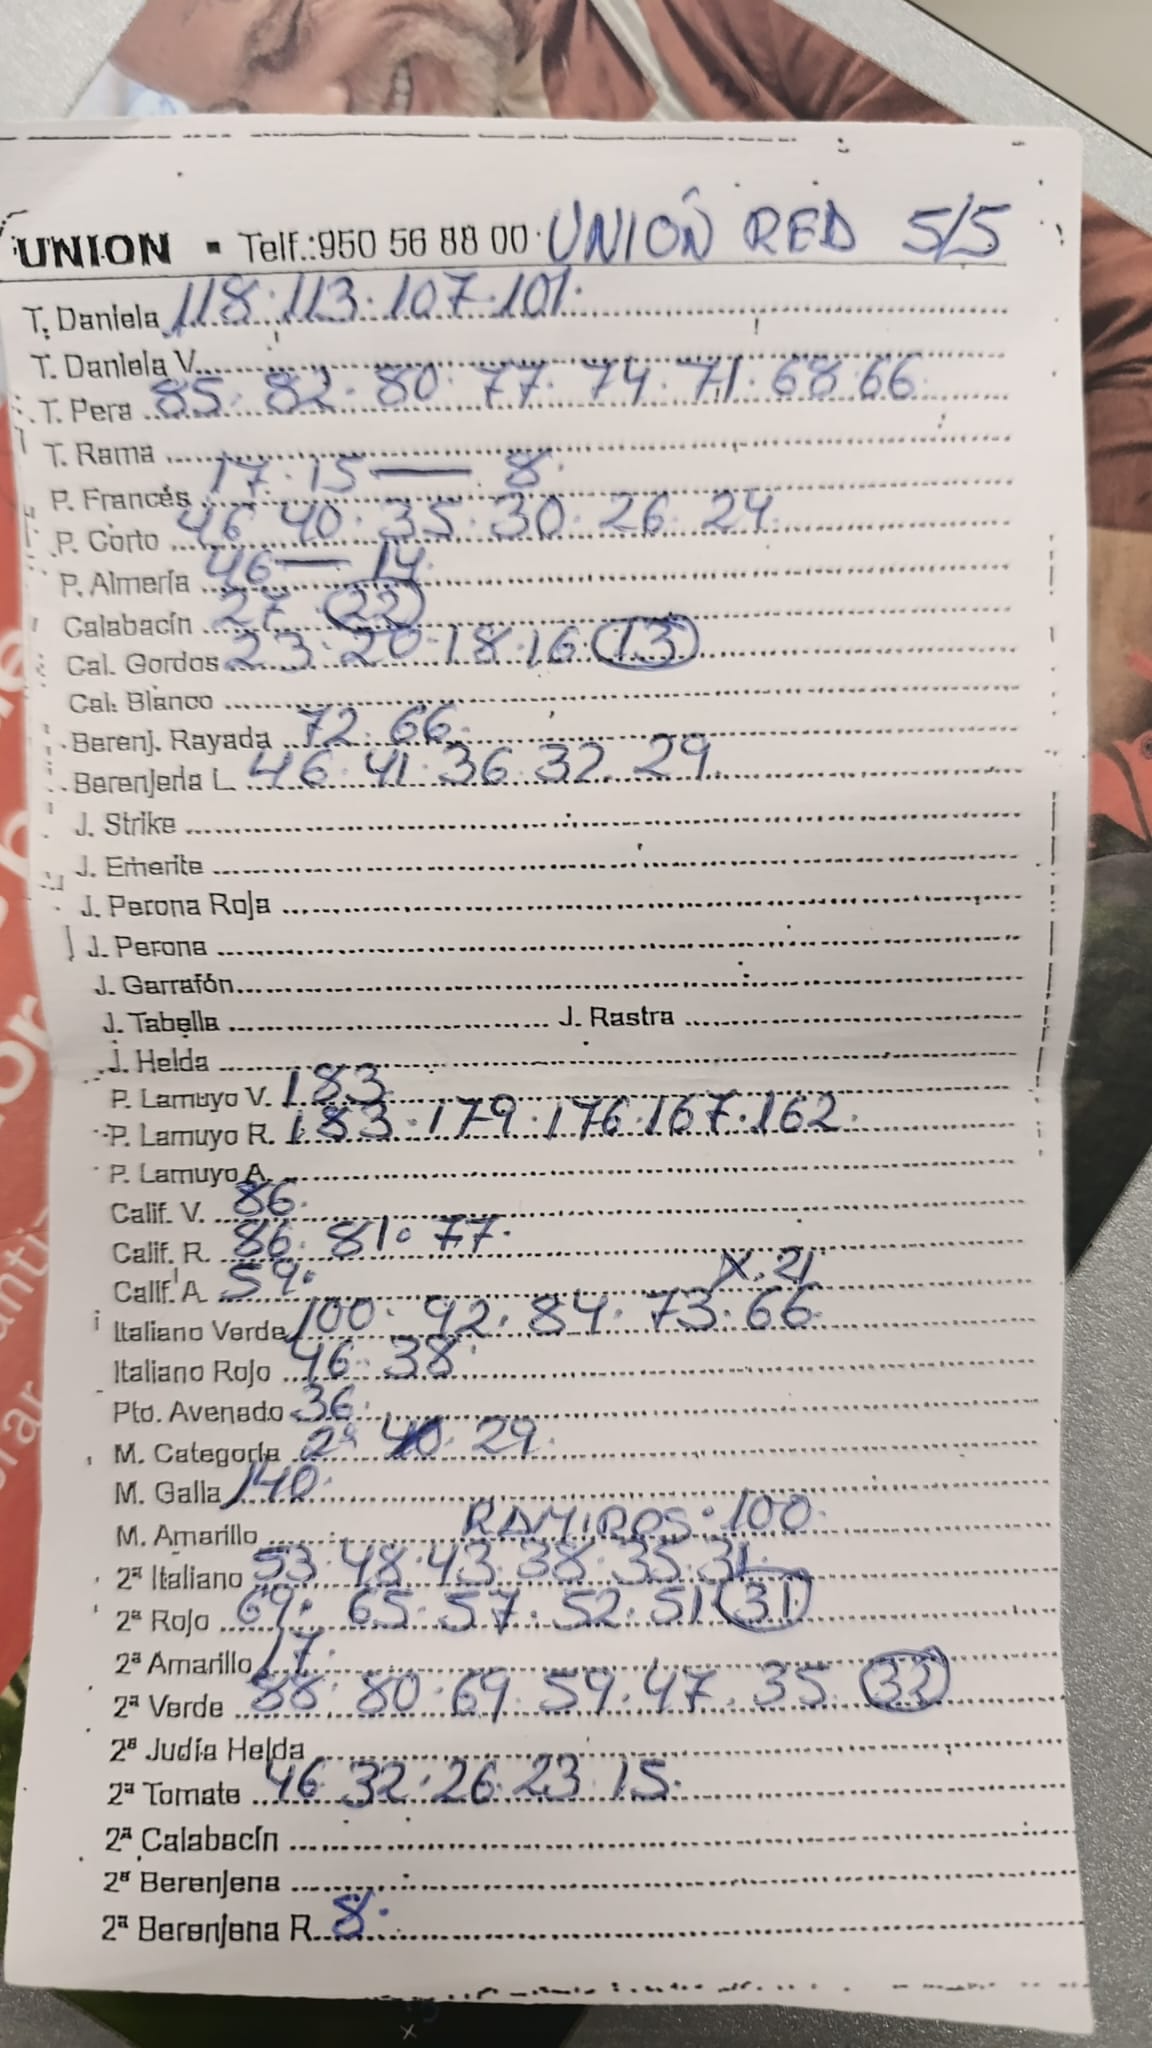 UNION ▪ Telf.:950 56 88 00 · UNIÓN RED 5/5
T. Daniela 118 · 113 · 107 · 101 ·
T. Daniela V.
T. Pera 85 · 82 · 80 · 77 · 74 · 71 · 68 · 66 ·
T. Rama
P. Francés 17 · 15 — 8 ·
P. Corto 46 40 · 35 · 30 · 26 · 24
P. Almería 46 — 14
Calabacín 27 · 22
Cal. Gordos 23 · 20 · 18 · 16 · 13
Cal. Blanco
Berenj. Rayada 72 · 66 ·
Berenjena L. 46 · 41 · 36 · 32 · 29 ·
J. Strike
J. Emerite
J. Perona Roja
J. Perona
J. Garrafón
J. Tabella J. Rastra
J. Helda
P. Lamuyo V. 183
P. Lamuyo R. 183 · 179 · 176 · 167 · 162 ·
P. Lamuyo A.
Calif. V. 86 ·
Calif. R. 86 · 81 · 77 ·
Calif. A. 59 · X. 21
Italiano Verde 100 · 92 · 84 · 73 · 66
Italiano Rojo 46 · 38 ·
Pto. Avenado 36 ·
M. Categoría 2ª 40 · 29 ·
M. Galla 140 ·
M. Amarillo RAMIROS · 100 ·
2ª Italiano 53 · 48 · 43 · 38 · 35 · 31 ·
2ª Rojo 69 · 65 · 57 · 52 · 51 31
2ª Amarillo 17 ·
2ª Verde 88 · 80 · 69 · 59 · 47 · 35 · 32
2ª Judía Helda
2ª Tomate 46 32 · 26 · 23 · 15 ·
2ª Calabacín
2ª Berenjena
2ª Berenjena R. 8 ·